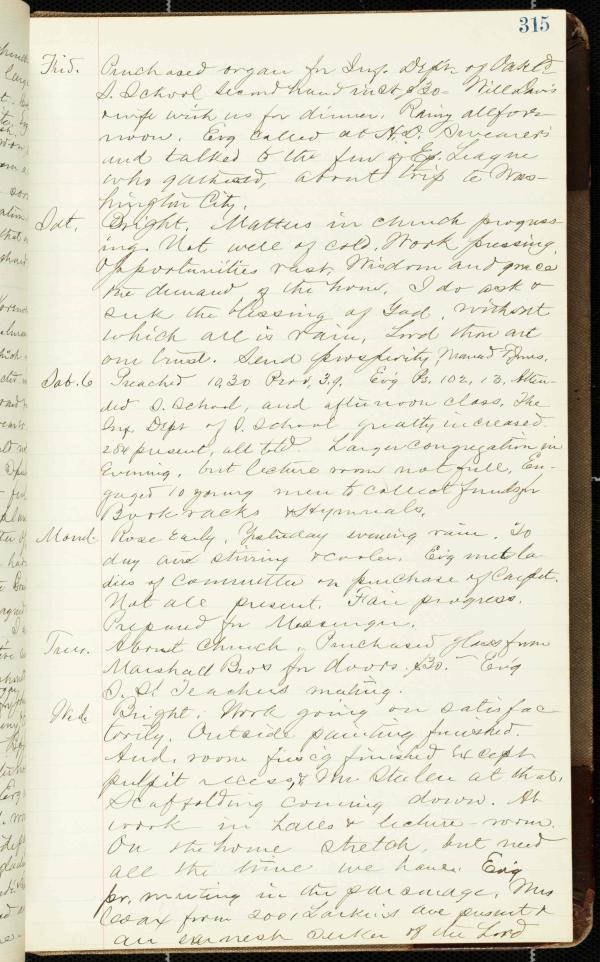 315
Frid. Purchased organ for Inf. Dept. of Oakl'd
S. School second hand inst $30 - Will Davis
& wife with us for dinner. Rainy all fore
noon. Evg called at N.D. Swearer's
and talked to the few of Ep. League
who gathered, about trip to Was-
hington City.
Sat. Bright. Matters in church progress-
ing. Not well of cold. Work pressing.
Opportunities vast. Wisdom and grace
the demand of the hour. I do ask &
seek the blessing of God, without
which all is vain. Lord thou art
our trust. Send prosperity,
Sab. 6 Preached 10,30 Prov, 3.9, Ev'g Ps. 102, 13, Atten-
ded S. School, and afternoon class. The
Inf. Dept of S. School greatly increased.
284 present, all told. Larger congregation in
Evening, but lecture room not full. En-
gaged 10 young men to collect funds for
Book racks & Hymnals.
Mond. Rose Early. Yesterday evening rain. To
day air stirring & cooler. Ev'g met la-
dies of committee on purchase of Carpet.
Not all present. Fair progress.
Prepared for Messenger.
Tues. About Church. Purchased glass from
Marshall Bros for doors. $30. - Evg
S. S. Teachers meeting.
Wed. Bright. Work going on satisfac
torily. Outside painting finished.
Aud. room finished except
pulpit recess, & Mr at that.
Scaffolding coming down. At
work in halls & lecture-room.
On the home stretch, but need
all the time we have. Ev'g
pr. meeting in the parsonage. Mrs
from 2001 Larkins ave present &
an earnest seeker of the Lord